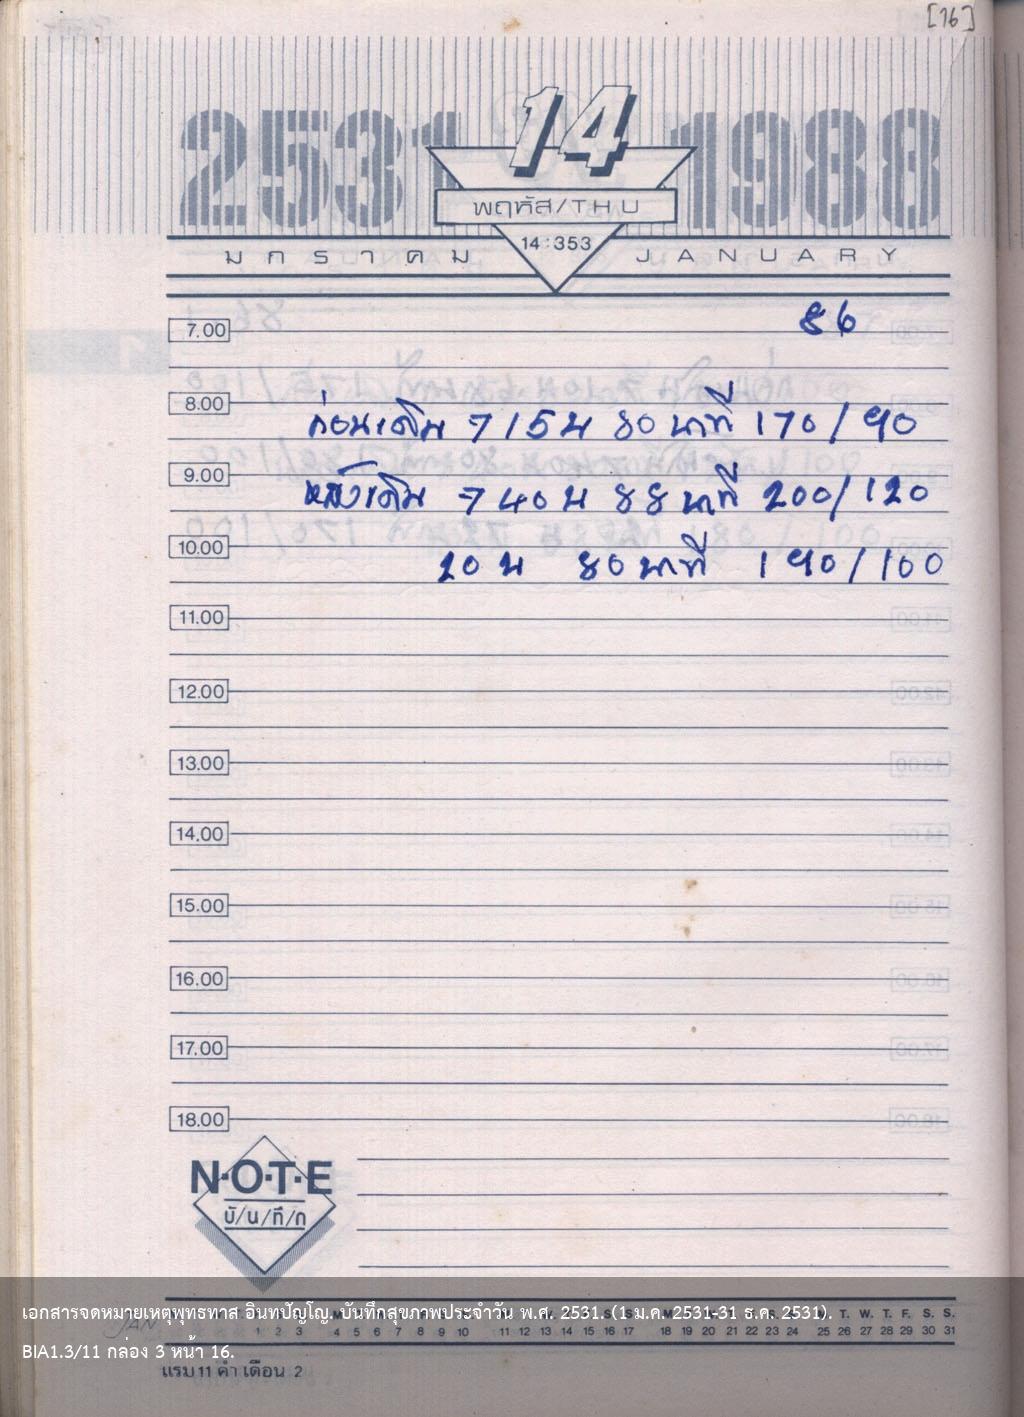 [16]
2531 14 1988
พฤหัส/THU
14:353
มกราคม JANUARY
86
7.00
8.00
ก่อนเดิน 7 15 น 80 นาที 170/90
9.00
หลังเดิน 7 40 น 88 นาที 200/120
10.00
20 น 80 นาที 190/100
11.00
12.00
13.00
14.00
15.00
16.00
17.00
18.00
N·O·T·E
บั/น/ทึ/ก
เอกสารจดหมายเหตุพุทธทาส อินทปัญโญ. บันทึกสุขภาพประจำวัน พ.ศ. 2531. (1 ม.ค. 2531-31 ธ.ค. 2531).
JAN 1 2 3 4 5 6 7 8 9 10 11 12 13 14 15 16 17 18 19 20 21 22 23 24 25 26 27 28 29 30 31
BIA1.3/11 กล่อง 3 หน้า 16.
แรม 11 ค่ำ เดือน 2